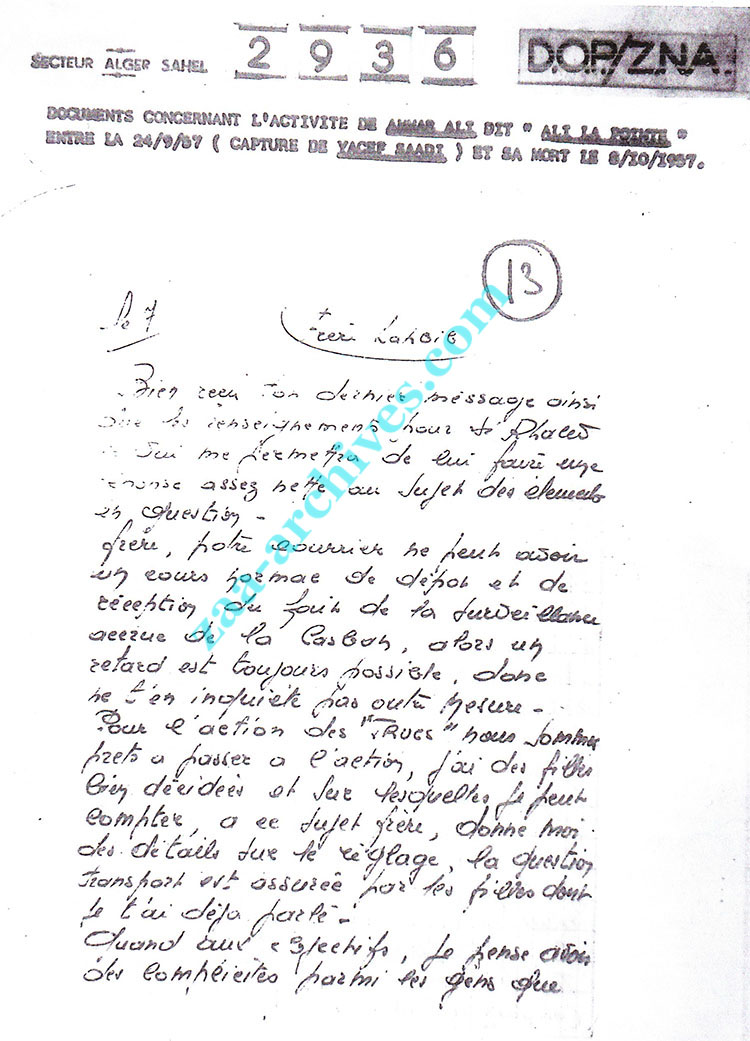 SECTEUR ALGER SAHEL
2 9 3 6
DOP/ZNA.
DOCUMENTS CONCERNANT L'ACTIVITE DE AMMAR ALI DIT " ALI LA POINTE "
ENTRE LA 24/9/57 ( CAPTURE DE YACEF SAADI ) ET SA MORT LE 8/10/1957.
13
le 7
frère Lahbib
Bien reçu ton dernier méssage ainsi
que les renseignements pour Si Khaled
qui me permettra de lui faire une
réponse assez nette au sujet des élements
en question -
frère, notre courrier ne peut avoir
un cours normal de dépot et de
réception du fait de la surveillance
accrue de la Casbah, alors un
retard est toujours possible, donc
ne t'en inquiéte pas outre mesure -
Pour l'action des "Trucs" nous sommes
prets a passer a l'action, j'ai des filles
bien décidées et sur lesquelles je peut
compter, a ce sujet frère, donne moi
des détails sur le réglage, la question
transport est assurée par les filles dont
je t'ai déja parlé -
Quand aux objectifs, je pense avoir
des complicités parmi les gens que
zaa-archives.com